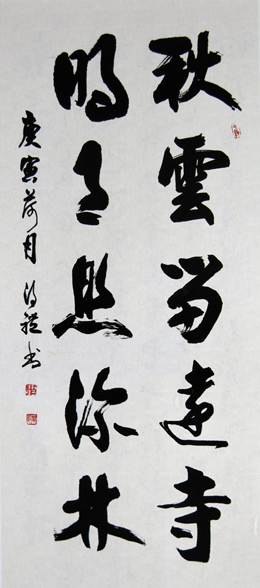 秋雲留遠寺
明月照深林
庚寅荷月
書